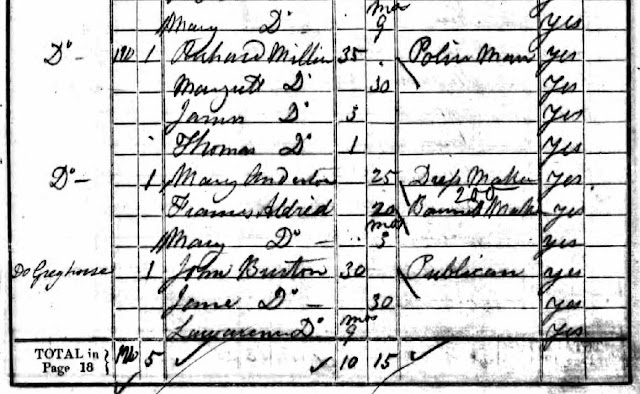 mos
Mary Do 9 yes
Do — 1 Richard Millin 35 Police Man yes
Margrett Do 30 Yes
James Do 3 Yes
Thomas Do 1 Yes
Do — 1 Mary Anderton 25 Dress Maker Yes
Frances Aldred 20 Bonnet Maker yes
mos
Mary Do — 5 yes
Do Greyhouse 1 John Burton 30 Publican yes
Jane Do — 30 Yes
mos
Do 9 Yes
TOTAL in Page 18 } 5 10 15